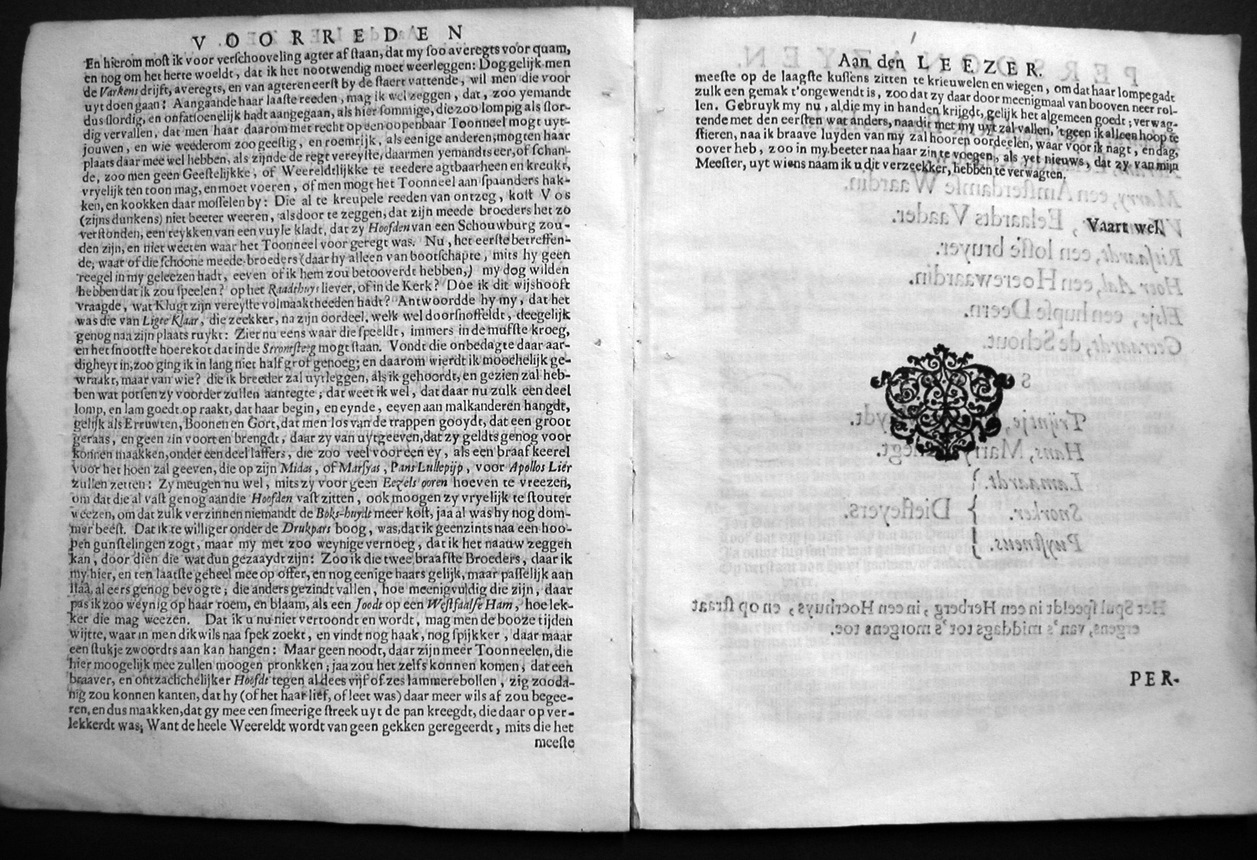 VOORREDEN
En hierom most ik voor verschooveling agter af staan, dat my soo averegts voor quam,
en nog om het herte woeldt, dat ik het nootwendig moet weerleggen: Dog gelijk men
de Varkens drijft, averegts, en van agteren eerst by de staert vattende, wil men die voor
uyt doen gaan! Aangaande haar laaste reeden, mag ik wel zeggen, dat, zoo yemandt
dus slordig, en onfatioenelijk hadt aangegaan, als hier sommige, die zoo lompig als slor-
dig vervallen, dat men haar daarom met recht op een oopenbaar Toonneel mogt uyt-
jouwen, en wie weederom zoo geestig, en roemrijk, als eenige anderen; mogten haar
plaats daar mee wel hebben, als zijnde de regt vereyste, daarmen yemandts eer, of schan-
de, zoo men geen Geestelijkke, of Weereldtlijkke te teedere agtbaarheen en kreukt,
vryelijk ten toon mag, en moet voeren, of men mogt het Toonneel aan spaanders hak-
ken, en kookken daar mosselen by: Die al te kreupele reeden van ontzeg, kost Vos
(zijns dunkens) niet beeter weeren, als door te zeggen, dat zijn meede broeders het zo
verstonden, een teykken van een vuyle kladt, dat zy Hoofden van een Schouwburg zou-
den zijn, en niet weeten waar het Toonneel voor geregt was. Nu, het eerste betreffen-
de, waar of die schoone meede-broeders (daar hy alleen van bootschapte, mits hy geen
reegel in my geleezen hadt, eeven of ik hem zou betooverdt hebben,) my dog wilden
hebben dat ik zou speelen? op het Raadthuys liever, of in de Kerk? Doe ik dit wijshooft
vraagde, wat Klugt zijn vereyste volmaaktheeden hadt? Antwoordde hy my, dat het
was die van Ligte Klaar, die zeekker, na zijn oordeel, welk wel doorsnoffeldt, deegelijk
genog naa zijn plaats ruykt: Ziet nu eens waar die speeldt, immers in de mufste kroeg,
en het snootste hoerekot dat in de Stroomsteeg mogt staan. Vondt die onbedagte daar aar-
digheyt in, zoo ging ik in lang niet half grof genoeg; en daarom wierdt ik moochelijk ge-
wraakt, maar van wie? die ik breeder zal uytleggen, als ik gehoordt, en gezien zal heb-
ben wat potsen zy voorder zullen aanregte; dat weet ik wel, dat daar nu zulk een deel
lomp, en lam goedt op raakt, dat haar begin, en eynde, eeven aan malkanderen hangdt,
gelijk als Erruwten, Boonen en Gort, dat men los van de trappen gooydt, dat een groot
geraas, en geen zin voort en brengdt, daar zy van uytgeeven, dat zy geldts genog voor
konnen maakken, onder een deel laffers, die zoo veel voor een ey, als een braaf keerel
voor het hoen zal geeven, die op zijn Midas, of Marsyas, Pans Lullepijp, voor Apollos Lier
zullen zetten: Zy meugen nu wel, mits zy voor geen Eezels ooren hoeven te vreezen,
om dat die al vast genog aan die Hoofden vast zitten, ook moogen zy vryelijk te stouter
weezen, om dat zulk verzinnen niemandt de Boks-huydt meer kost, jaa al was hy nog dom-
mer beest. Dat ik te williger onder de Drukpars boog, was, dat ik geenzints naa een hoo-
pen gunstelingen zogt, maar my met zoo weynige vernoeg, dat ik het naauw zeggen
kan, door dien die wat dun gezaaydt zijn: Zoo ik die twee braafste Broeders, daar ik
my hier, en ten laatste geheel mee op offer, en nog eenige haars gelijk, maar passelijk aan
staa, al eers genog bevogte; die anders gezindt vallen, hoe meenigvuldig die zijn, daar
pas ik zoo weynig op haar roem, en blaam, als een Joods op een Westfaalse Ham, hoe lek-
ker die mag weezen. Dat ik u nu niet vertoondt en wordt, mag men de booze tijden
wijtte, waar in men dikwils naa spek zoekt, en vindt nog haak, nog spijkker, daar maar
een stukje zwoordts aan kan hangen: Maar geen noodt, daar zijn meer Toonneelen, die
hier moogelijk mee zullen moogen pronkken; jaa zou het zelfs konnen komen, dat een
braaver, en ontzachchelijker Hoofdt tegen al dees vijf of zes lammerebollen, zig zooda-
nig zou konnen kanten, dat hy (of het haar lief, of leet was) daar meer wils af zou begee-
ren, en dus maakken, dat gy mee een smeerige streek uyt de pan kreegdt, die daar op ver-
lekkerdt was; Want de heele Weereldt wordt van geen gekken geregeerdt, mits die het
meeste
Aan den LEEZER.
meeste op de laagste kussens zitten te krieuwelen en wiegen, om dat haar lompe gadt
zulk een gemak t'ongewendt is, zoo dat zy daar door meenigmaal van booven neer rol-
len. Gebruyk my nu, al die my in handen krijgdt, gelijk het algemeen goedt; verwag-
tende met den eersten wat anders, naa dit met my uyt zal vallen, 'tgeen ik alleen hoop te
stieren, naa ik braave luyden van my zal hooren oordeelen, waar voor ik nagt, en dag,
oover heb, zoo in my beeter naa haar zin te voegen, als yet nieuws, dat zy van mijn
Meester, uyt wiens naam ik u dit verzeekker, hebben te verwagten.
Vaart wel.
PER-